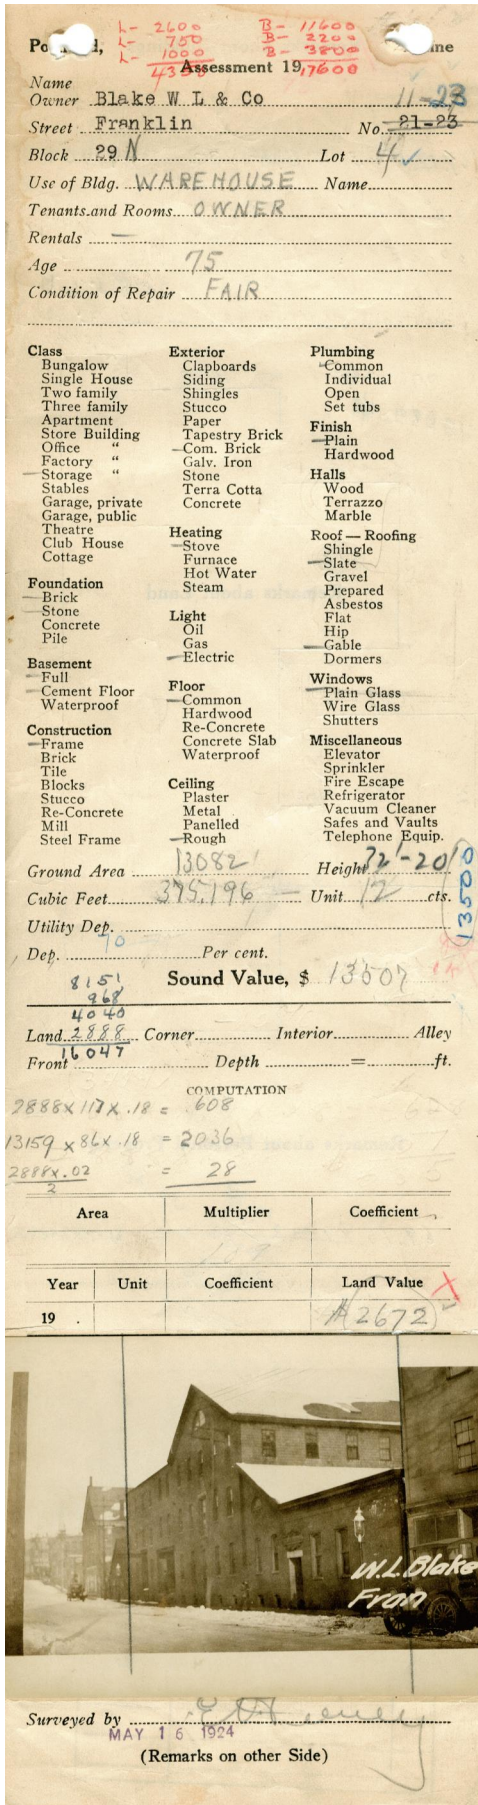 L- 2600 B- 11600
L- 750 B- 2200
L- 1000 B- 3800
4350 17600
Assessment 19
Name
Owner Blake W L & Co 11-23
Street Franklin No. 21-23
Block 29 N Lot 4
Use of Bldg. WAREHOUSE Name
Tenants and Rooms OWNER
Rentals —
Age 75
Condition of Repair FAIR
Class
Bungalow
Single House
Two family
Three family
Apartment
Store Building
Office "
Factory "
Storage "
Stables
Garage, private
Garage, public
Theatre
Club House
Cottage
Foundation
Brick
Stone
Concrete
Pile
Basement
Full
Cement Floor
Waterproof
Construction
Frame
Brick
Tile
Blocks
Stucco
Re-Concrete
Mill
Steel Frame
Exterior
Clapboards
Siding
Shingles
Stucco
Paper
Tapestry Brick
Com. Brick
Galv. Iron
Stone
Terra Cotta
Concrete
Heating
Stove
Furnace
Hot Water
Steam
Light
Oil
Gas
Electric
Floor
Common
Hardwood
Re-Concrete
Concrete Slab
Waterproof
Ceiling
Plaster
Metal
Panelled
Rough
Plumbing
Common
Individual
Open
Set tubs
Finish
Plain
Hardwood
Halls
Wood
Terrazzo
Marble
Roof — Roofing
Shingle
Slate
Gravel
Prepared
Asbestos
Flat
Hip
Gable
Dormers
Windows
Plain Glass
Wire Glass
Shutters
Miscellaneous
Elevator
Sprinkler
Fire Escape
Refrigerator
Vacuum Cleaner
Safes and Vaults
Telephone Equip.
Ground Area 13082 Height 32'-20'
Cubic Feet 375,196 Unit 12 cts.
13500
Utility Dep.
Dep. 70 Per cent.
Sound Value, $ 13507
8151
968
4040
Land 2888 Corner Interior Alley
16047
Front Depth = ft.
COMPUTATION
2888 x 117 x .18 = 608
13159 x 86 x .18 = 2036
2888 x .02 = 28
2
Area Multiplier Coefficient
Year Unit Coefficient Land Value
19 . 2672
W.L. Blake
Fran
Surveyed by
MAY 16 1924
(Remarks on other Side)